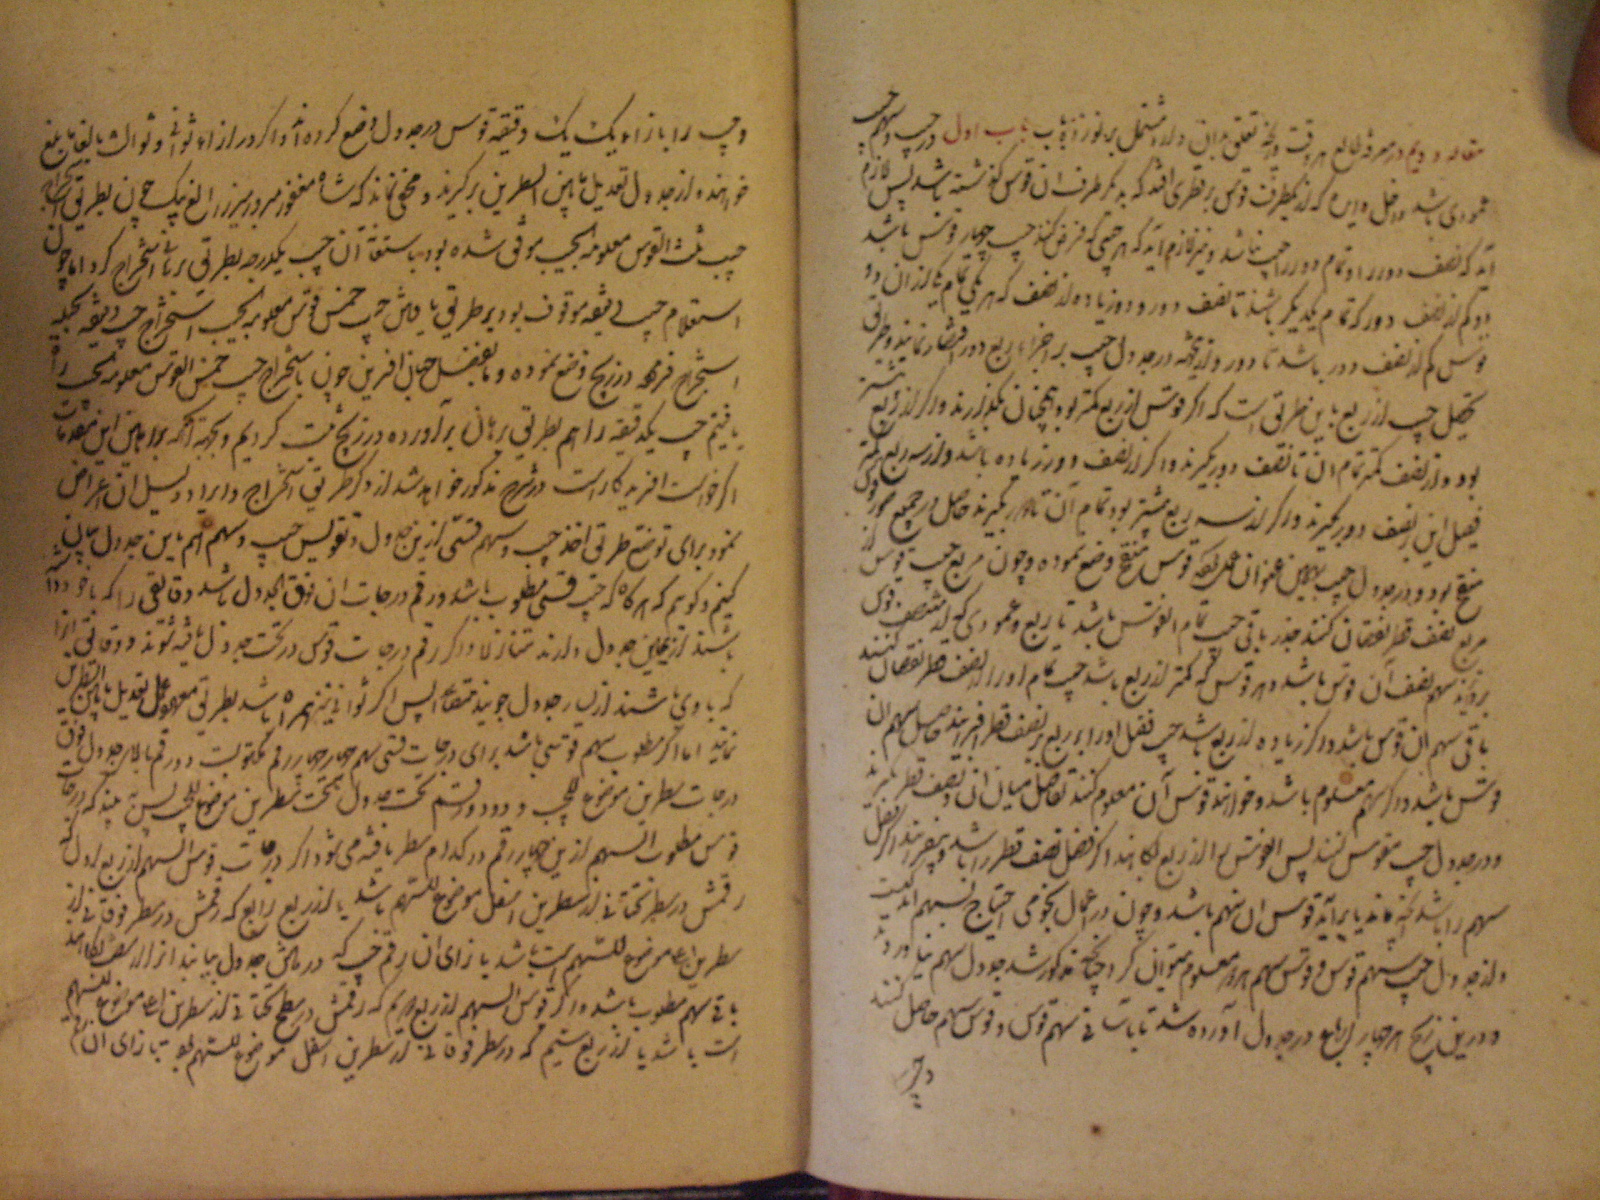 مقاله دویم در معرفت طالع هر وقت و آنچه تعلق بدان دارد مشتمل بر نوزده باب باب اول در جیب و سهم جیب
عمودی باشد داخل دایره که از یکطرف قوس بر قطری افتد که بدیگر طرف آن قوس گذشته باشد پس لازم
آید که نصف دور را و تمام دور را جیب نباشد و نیز لازم آید که هر جیبی که فرض کنند جیب چهار قوس باشد
دو کم از نصف دور که تمام یکدیگر باشند تا نصف دور و دو زیاده از نصف که هر یکی تمام یکی از آن دو
قوس کم از نصف دور باشد تا دور و از اینجهة در جدول جیب بر اجزاء ربع دور اقتصار نمایند و طریق
تحصیل جیب از ربع باین طریق است که اگر قوس از ربع کمتر بود همچنان بگذارند و اگر از ربع بیشتر
بود و از نصف کمتر تمام آن تا نصف دور بگیرند و اگر از نصف دور زیاده باشد و از سه ربع کمتر
فضل این بر نصف دور بگیرند و اگر از سه ربع بیشتر بود تمام آن تا دور بگیرند حاصل در جمیع صور قوس
منقح بود و در جدول جیب بهمین عنوان عمل کرده قوس منقح وضع نموده و چون مربع جیب قوس از
مربع نصف قطر نقصان کنند جذر باقی جیب تمام القوس باشد تا ربع و عمودی که از منتصف قوس
بر وتر سهم نصف آن قوس باشد و هر قوس که کمتر از ربع باشد جیب تمام او را از نصف قطر نقصان کنند
باقی سهم آن قوس باشد و اگر زیاده از ربع باشد جیب فضل او را بر ربع بر نصف قطر افزایند حاصل سهم آن
قوس باشد و اگر سهم معلوم باشد و خواهند قوس آن معلوم کنند تفاضل میان آن و نصف قطر بگیرند
و در جدول جیب مقوس کنند پس القوس را از ربع بکاهند اگر فضل نصف قطر را باشد و بیفزایند اگر فضل
سهم را باشد آنچه بماند یا برآید قوس آن سهم باشد و چون در اعمال نجومی احتیاج بسهم اندکست
و از جدول جیب سهم قوس و قوس سهم هم معلوم میتوان کرد چنانچه مذکور شد جدول سهم نیاوردند
و درین زیج هر چهار ارباع در جدول آورده شد تا بآسانی سهم قوس و قوس سهم حاصل کنند
و جیب
و جیب را بازاء یک یک دقیقه قوس در جدول وضع کرده‌اند و اگر در ازاء ثوانی و ثوالث یا لیغا ما بلغ
خواهند از جدول تعدیل ما بین السطرین برگیرند و مخفی نماند که شاه مغفور مبرور میرزا الغ بیک چون بطریق استخراج
جیب ثلث القوس معلومة الجیب موفق شده بود باستعانة آن جیب یکدرجه بطریق برهانی استخراج کرد اما چون
استعلام جیب دقیقه موقوف بود بر طریق یافتن جیب خمس قوس معلومه الجیب استخراج جیب دقیقه بحیله
استخراج فرموده در زیج وضع نموده و ما بفضل جهان آفرین چون باستخراج جیب خمس القوس معلومه الجیب راه
یافتیم جیب یکدقیقه را هم بطریق برهان برآورده در زیج ثبت کردیم و بجهة آنکه براهین این مقدمات
اگر خواست آفریدگار است در شرح مذکور خواهد شد از ذکر طریق استخراج و ایراد دلیل آن اعراض
نمود برای توضیح طریق اخذ جیب و سهم قسی ازین جدول و تقویس جیب و سهم هم باین جدول بیان
کنیم و گوییم که هرگاه که جیب قسی مطلوب باشد رقم درجات آن فوق جدول باشد دقایقی را که با خود دارد
باشند از یمین جدول دارند متنازلا و اگر رقم درجات قوس در تحت جدول یافته شوند و دقایقی را
که با وی باشند از یسار جدول جویند متصاعد پس اگر ثوانی نیز همراه باشد بطریق معهود عمل تعدیل ما بین السطرین
نمایند اما اگر مطلوب سهم قوسی باشد برای درجات قسی سهم چهار چهار رقم مکتوبست دو رقم بالای جدول فوق
درجات سطرین موضوع للجیب و دو رقم تحت جدول تحت سطرین موضوع للجیب پس بینند که درجات
قوس مطلوب السهم ازین چهار رقم در کدام سطر یافته می‌شود اگر درجات قوس السهم از ربع اول که
رقمش در سطر تحتانی از سطرین اسفل موضوع للسهم باشد یا از ربع رابع که رقمش در سطر فوقانی از
سطرین اعلی موضوع للسهم است باشد بازای آن رقم جیب که در مابین جدول بیابند از نصف قطر بکاهند
باقی سهم مطلوب باشد و اگر قوس السهم از ربع دویم که رقمش در سطح تحتانی از سطرین اعلی موضوع للسهم
است باشد یا از ربع سیم که در سطر فوقانی از سطرین اسفل موضوع للسهم بود بازای آن رقم